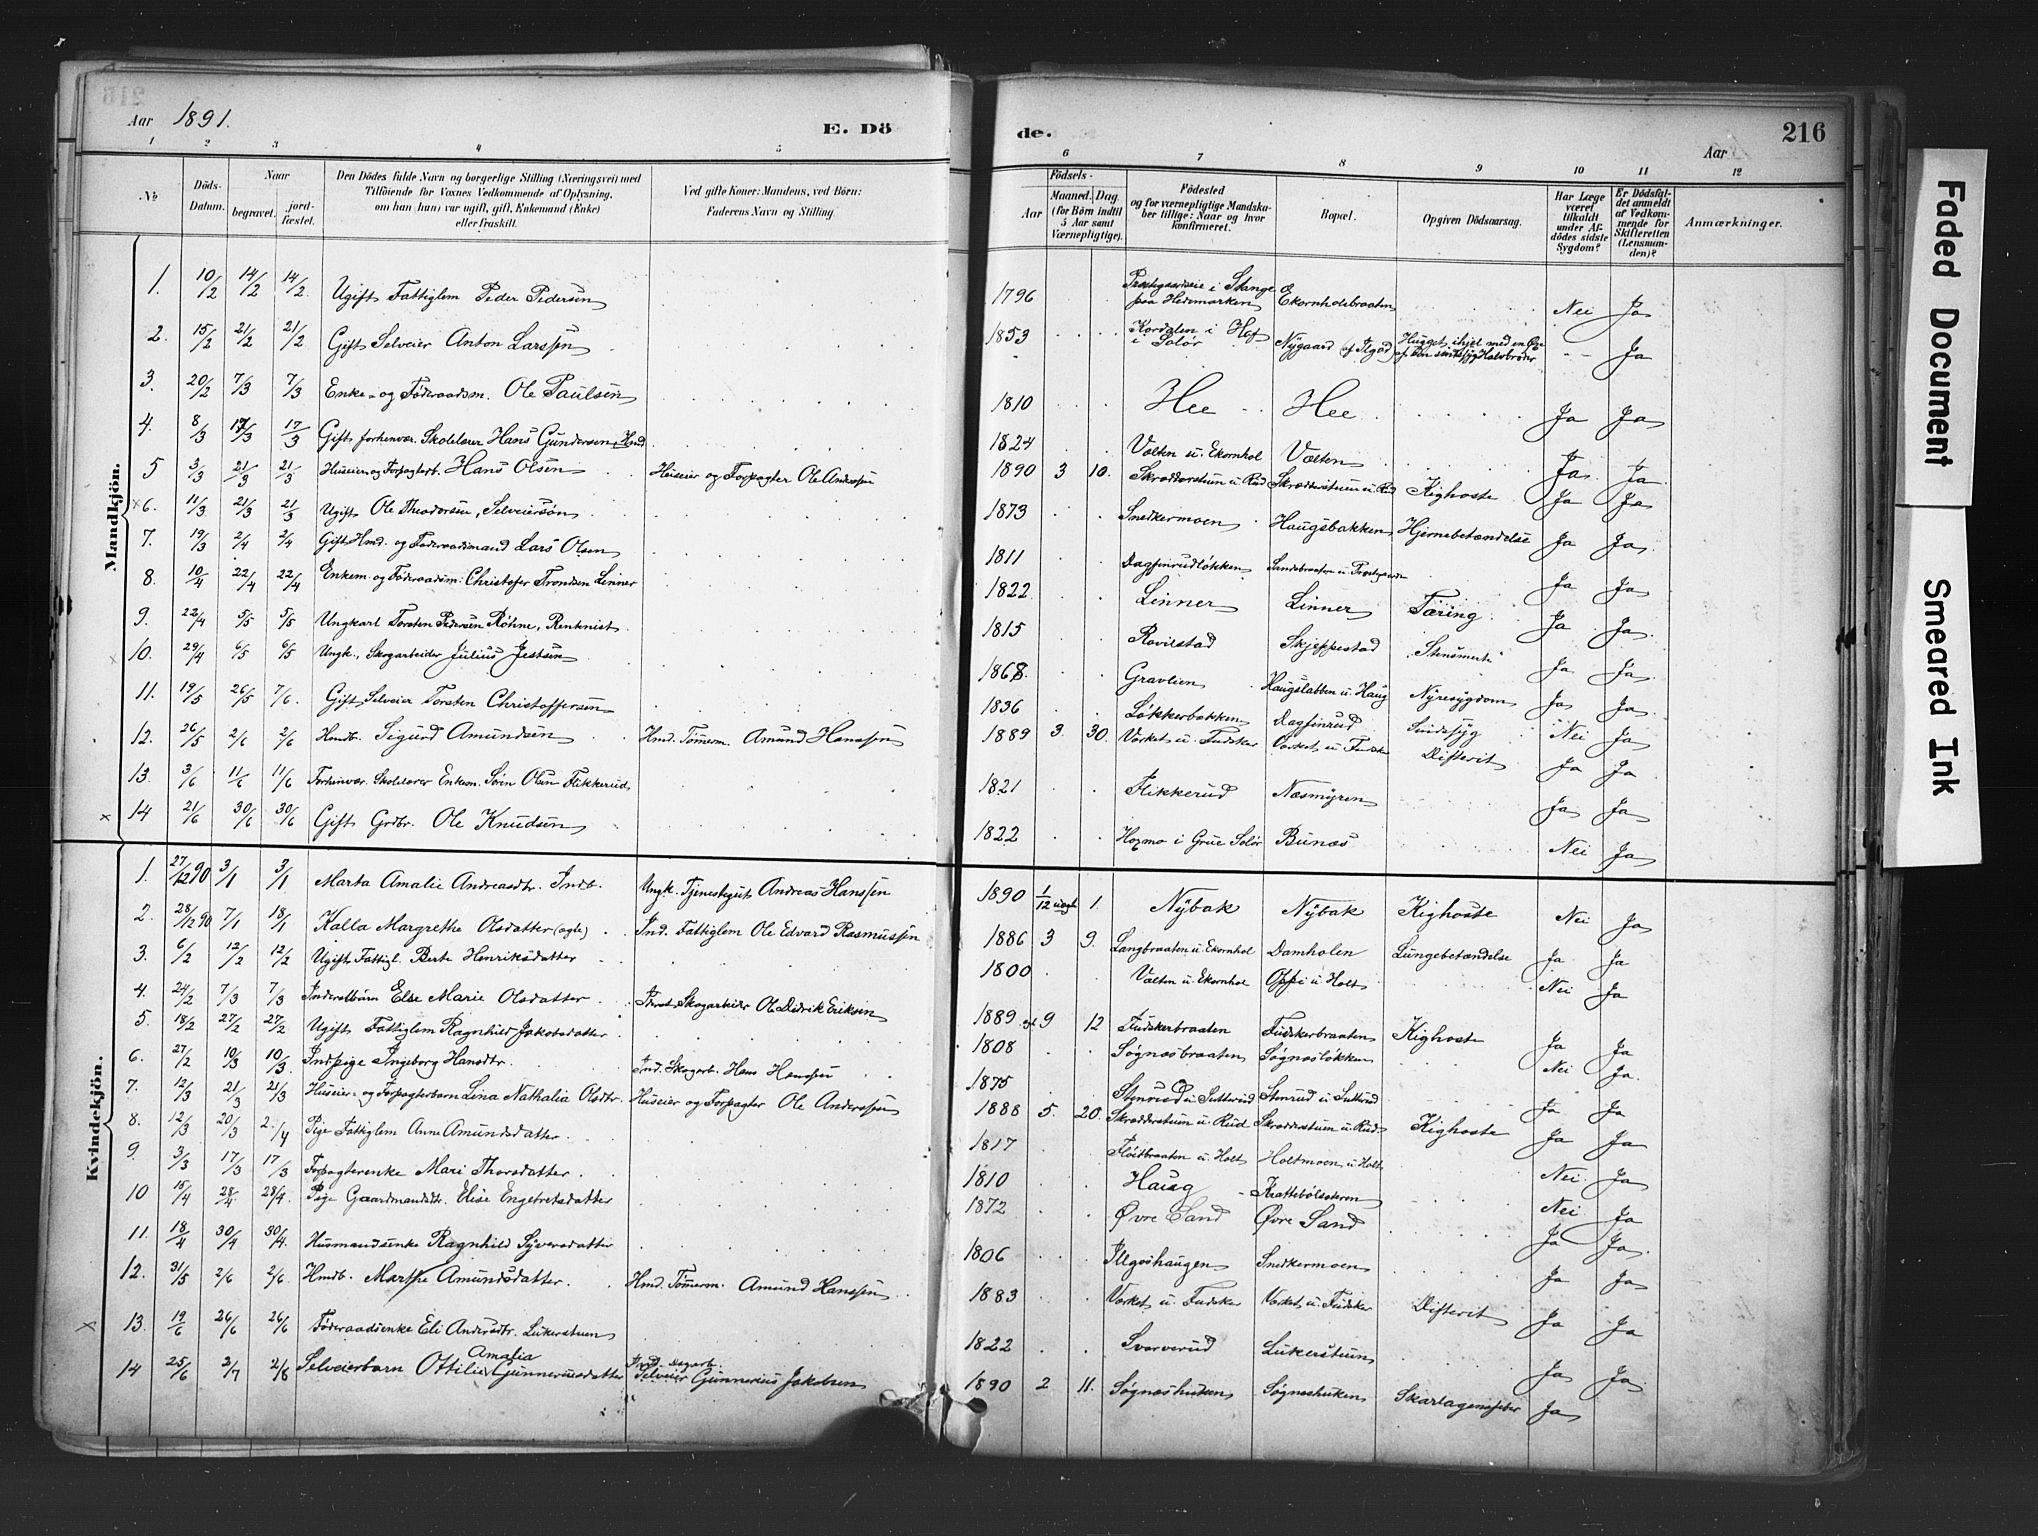 Aar 1891.
E. Dö
de.
Aar
216
1 2 3 4 5
6 7 8 9 10 11 12
№
Döds-Datum.
Naar
begravet.
jord-fæstet.
Den Dödes fulde Navn og borgerlige Stilling (Næringsvei) med
Tilföiende for Voxnes Vedkommende af Oplysning,
om han (hun) var ugift, gift, Enkemand (Enke)
eller fraskilt.
Ved gifte Koner: Mandens, ved Börn:
Faderens Navn og Stilling.
Födsels-
Aar
Maaned.
Dag.
(for Börn indtil
5 Aar samt
Værnepligtige).
Födested
og for værnepligtige Mandska-
ber tillige: Naar og hvor
konfirmeret.
Bopæl.
Opgiven Dödsaarsag.
Har Læge
været
tilkaldt
under Af-
dödes sidste
Sygdom?
Er Dödsfal-
det anmeldt
af Vedkom-
mende for
Skifteretten
(Lensman-
den)?
Anmærkninger.
Mandkjön.
1. 10/2 14/2 14/2 Ugift Fattiglem Peder Pedersen 1796 Prestegaardseie i Stange paa Hedemarken Ekornholsbraaten Nei Ja
2. 15/2 21/2 21/2 Gift Selveier Anton Larssen 1853 i Hof i Solør Nygaard af Hugget ihjel med en Øxe af sin sindssyg Halvbroder -- Ja
3. 20/2 7/3 7/3 Enke- og Føderaadsm. Ole Paulsen 1810 Hee Hee Ja Ja
4. 8/3 17/3 17/3 Gift forhenvær. Skolelærer Hans Gundersen, Hmd 1824 Vælten u. Ekornhol Vælten Ja Ja
5 3/3 21/3 21/3 Huseier og Forpagterb. Hans Olsen Huseier og Forpagter Ole Anderssen 1890 3 10. Skrædderstuen u. Rud Skrædderstuen u. Rud Kighoste Ja Ja
x 6. 11/3 21/3 21/3 Ugift Ole Theodorsen, Selveiersøn 1873 Snedkermoen Haugsbakken Hjernebetændelse Ja Ja.
7. 19/3 2/4 2/4 Gift Hmd. og Føderaadsmand Lars Olsen 1811 Dagfinrudløkken Sandebraaten u. Prestgaarden Ja Ja
8. 10/4 22/4 22/4 Enkem. og Føderaadsm. Christofer Trondsen Linner 1822 Linner Linner Tæring. Ja Ja.
9. 22/4 5/5 5/5 Ungkarl Torsten Pedersen Røhne, Rentenist 1815 Rovilstad Skjeppestad "Stensmerte" Ja Ja.
x 10. 29/4 6/5 6/5 Ungk., Skogarbeider Julius Jensen 1868. Gravlien Haugslabben u. Haug Nyresygdom Ja Ja.
11. 19/5 26/5 7/6. Gift Selveier Torsten Christoffersen 1836 Løkkerbakken Dagfinrud Sindssyg Nei Ja
12. 26/5 2/6 2/6 Hmdb. Sigurd Amundsen Hmd. Tømerm. Amund Hanssen 1889 3. 30. Vorket u. Fudsker Vorket u. Fudsker Difterit Ja Ja
13. 3/6 11/6 11/6 Forhenvær. Skolelærer Enkem. Søren Olsen Flikkerud 1821 Flikkerud Næsmyren Ja Ja
x 14 21/6 30/6 30/6 Gift Grdbr. Ole Knudsen 1822 i Grue Solør Bunæs Nei Ja
Kvindekjön.
1. 27/12 90 3/1 3/1 Marta Amalie Andreasdtr. Indb. Ungk. Tjenestegut Andreas Hanssen 1890 1/12 uægte 1. Nÿbak Nÿbak Kighoste Nei Ja
2. 28/12 90 7/1 18/1 Kalla Margrethe Olsdatter (ægte) Ind. Fattiglem Ole Edvard Rasmussen 1886 3 9. Langbraaten u. Ekornhol Damholen Lungebetændelse Ja Ja
3. 6/2 12/2 12/2 Ugift Fattigl. Berte Henriksdatter 1800 Vælten u. Ekornhol Oppei u. Holt Nei Ja
4. 24/2 7/3 7/3 Inderstbarn Else Marie Olsdatter Inderst Skogarbeider Ole Didrik Eriksen 1889 ægt 9 12 Fudskerbraaten Fudskerbraaten Kighoste Ja Ja
5. 18/2 27/2 27/2 Ugift Fattiglem Ragnhild Jakobsdatter 1808 Søgnæsbraaten Søgnæsløkken Nei Ja.
6. 27/2 10/3 10/3 Indspige Ingeborg Hansdtr. Ind. Skogarb. Hans Hanssen 1875 Stenrud u Sutterud Stenrud u Sutterud Ja Ja
7. 12/3 21/3 21/3 Huseier- og Forpagterbarn Lina Nathalia Olsdtr. Huseier og Forpagter Ole Anderssen 1888 5. 20. Skrædderstuen u. Rud Skrædderstuen u. Rud Kighoste Ja Ja
8. 12/3 20/3 2/4 Pige Fattiglem Anne Amundsdatter 1817 Fløitbraaten u. Holt Holtmoen u. Holt Nei Ja
9. 3/3 17/3 17/3 Forpagterenke Mari Thorsdatter 1810 Haug Krattebølsæteren Nei. Ja
10 15/4 28/4 28/4 Pige Gaardmandsdtr. Elise Engebretsdatter 1872 Øvre Sand Øvre Sand Ja Ja.
11. 18/4 30/4 30/4. Husmandsenke Ragnhild Syversdatter 1806 Illgoshaugen Snedkermoen Ja Ja
12. 31/5 2/6 2/6. Hmdb. Marthe Amundsdatter. Hmd. Tømerm. Amund Hanssen 1883 Vorket u. Fudsker Vorket u. Fudsker Difterit Ja Ja
x 13. 19/6 26/6 26/6 Føderaadsenke Eli Andersdtr. Lukerstuen 1822 Svarverud Lukerstuen Ja Ja.
14 25/6 2/7 2/8 Selveierbarn Ottilie Amalia Gunnerusdatter Ind. Dagarb. Selveier Gunnerius Jakobsen 1890 2 11. Søgnæshuken Søgnæshuken Skarlagensfeber Ja
Faded Document
Smeared Ink